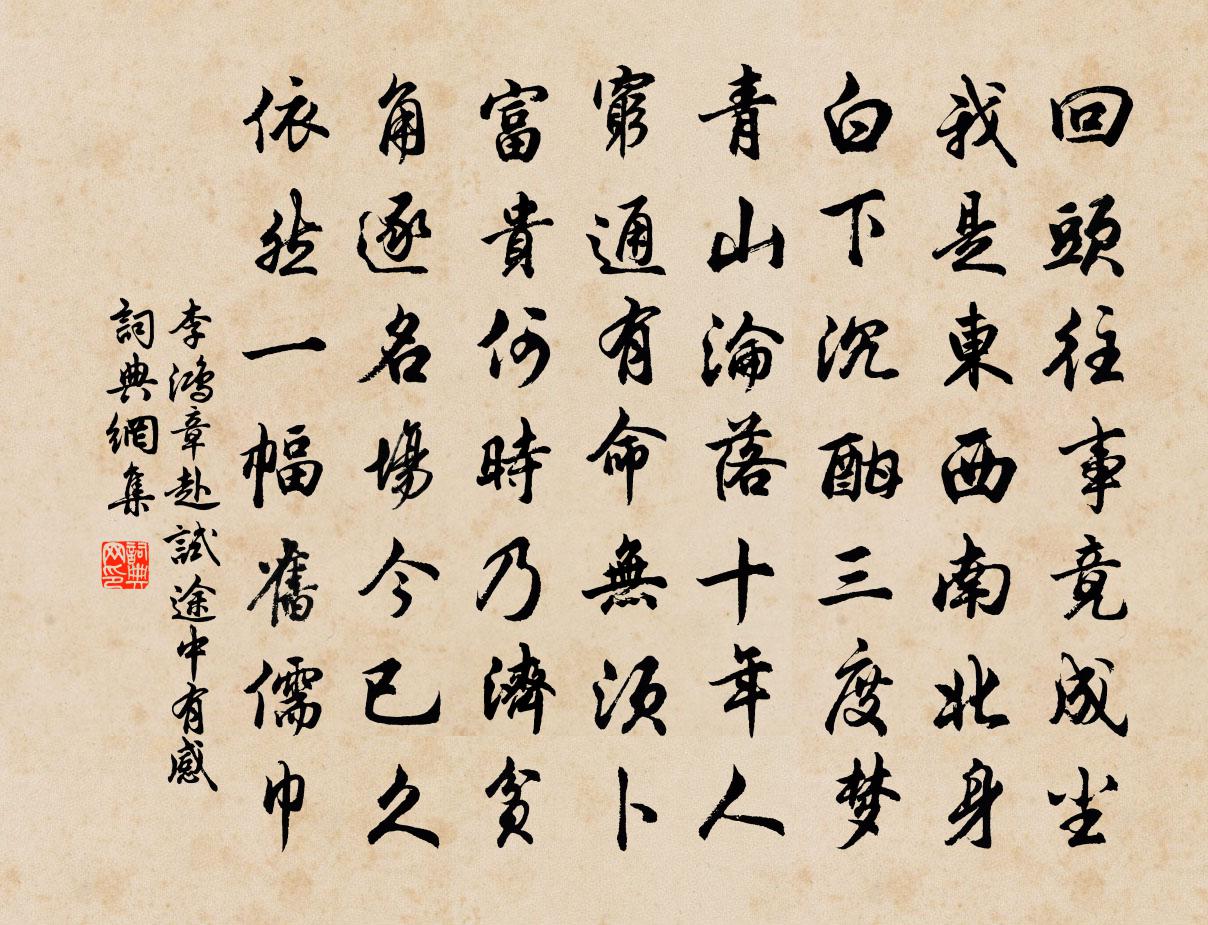 回頭往事竟成尘
我是東西南北身
白下沉酣三度梦
青山淪落十年人
窮通有命無須卜
富貴何時乃濟貧
角逐名場今已久
依然一幅舊儒巾
李鴻章赴試途中有感
詞典網集
詞典网印